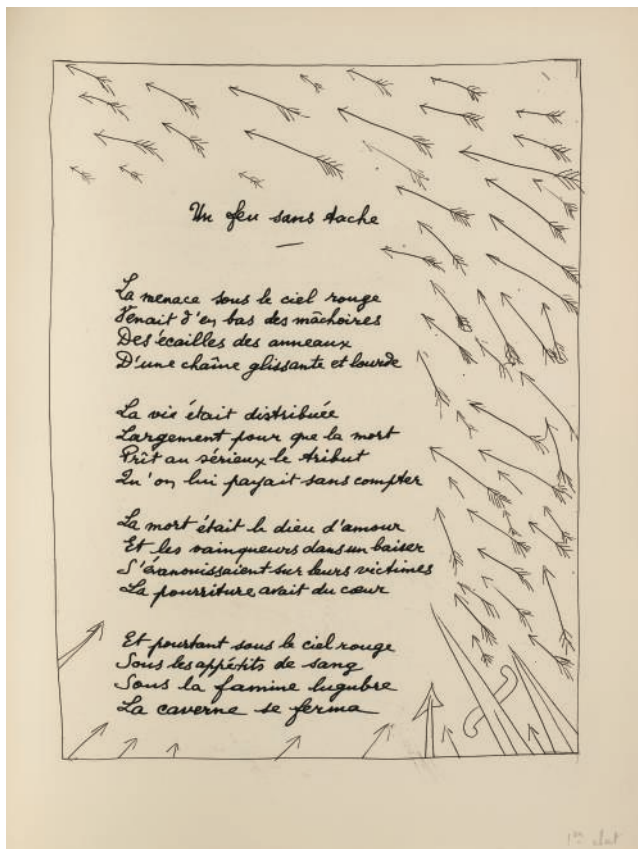 Un feu sans tache
La menace sous le ciel rouge
Venait d'en bas des mâchoires
Des écailles des anneaux
D'une chaîne glissante et lourde
La vie était distribuée
Largement pour que la mort
Prît au sérieux le tribut
Qu'on lui payait sans compter
La mort était le dieu d'amour
Et les vainqueurs dans un baiser
S'évanouissaient sur leurs victimes
La pourriture avait du cœur
Et pourtant sous le ciel rouge
Sous les appétits de sang
Sous la famine lugubre
La caverne se ferma
1er état